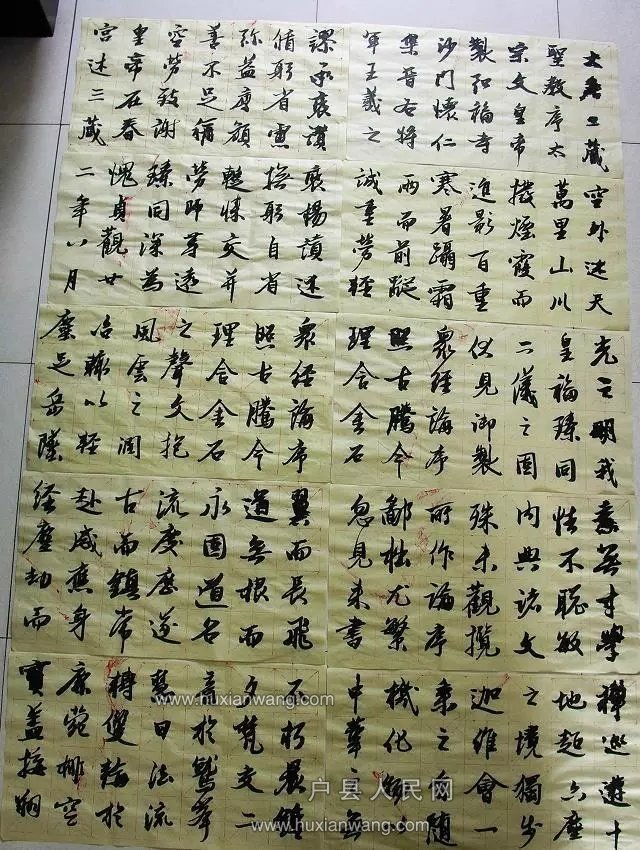 大唐三藏
聖教序太
宗文皇帝
製弘福寺
沙門懷仁
集晉右將
軍王羲之
謬承褒讚
循躬省慮
弥益厚顏
善不足稱
空勞致謝
皇帝在春
宮述三藏
空外迷天
萬里山川
撥煙霞而
進影百重
寒暑躡霜
雨而前蹤
誠重勞輕
褒揚讚述
撫躬自省
慙悚交并
勞師等遠
臻同深為
愧貞觀廿
二年八月
克之明我
皇福臻同
二儀之固
伏見御製
衆經論序
照古騰今
理含金石
衆經論序
照古騰今
理含金石
之聲文抱
風雲之潤
治輒以輕
塵足岳墜
無才學
性不聰敏
内典諸文
殊未觀攬
所作論序
鄙拙尤繁
忽見來書
翼而長飛
道無根而
永固道名
流慶歷遂
古而鎮常
赴感應身
經塵劫而
禪巡遊十
地超六塵
之境獨步
迦維會一
乘之旨隨
機化
中華之無
不朽晨鍾
夕梵交二
音於鷲峯
慧日法流
轉雙輪於
鹿苑排空
寶盖接翔
www.huxianwang.com
户县人民网
www.huxianwang.com